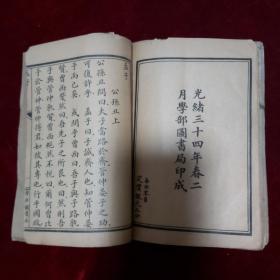 光緒三十四年春二
月學部圖書局印成
公孫丑上
公孫丑問曰夫子當路於齊管仲晏子之功
可復許乎 孟子曰子誠齊人也知管仲晏
子而已矣 或問乎曾西曰吾子與子路孰
賢曾西蹵然曰吾先子之所畏也曰然則吾
子與管仲孰賢曾西艴然不悅曰爾何曾比
予於管仲管仲得君如彼其專也行乎國政